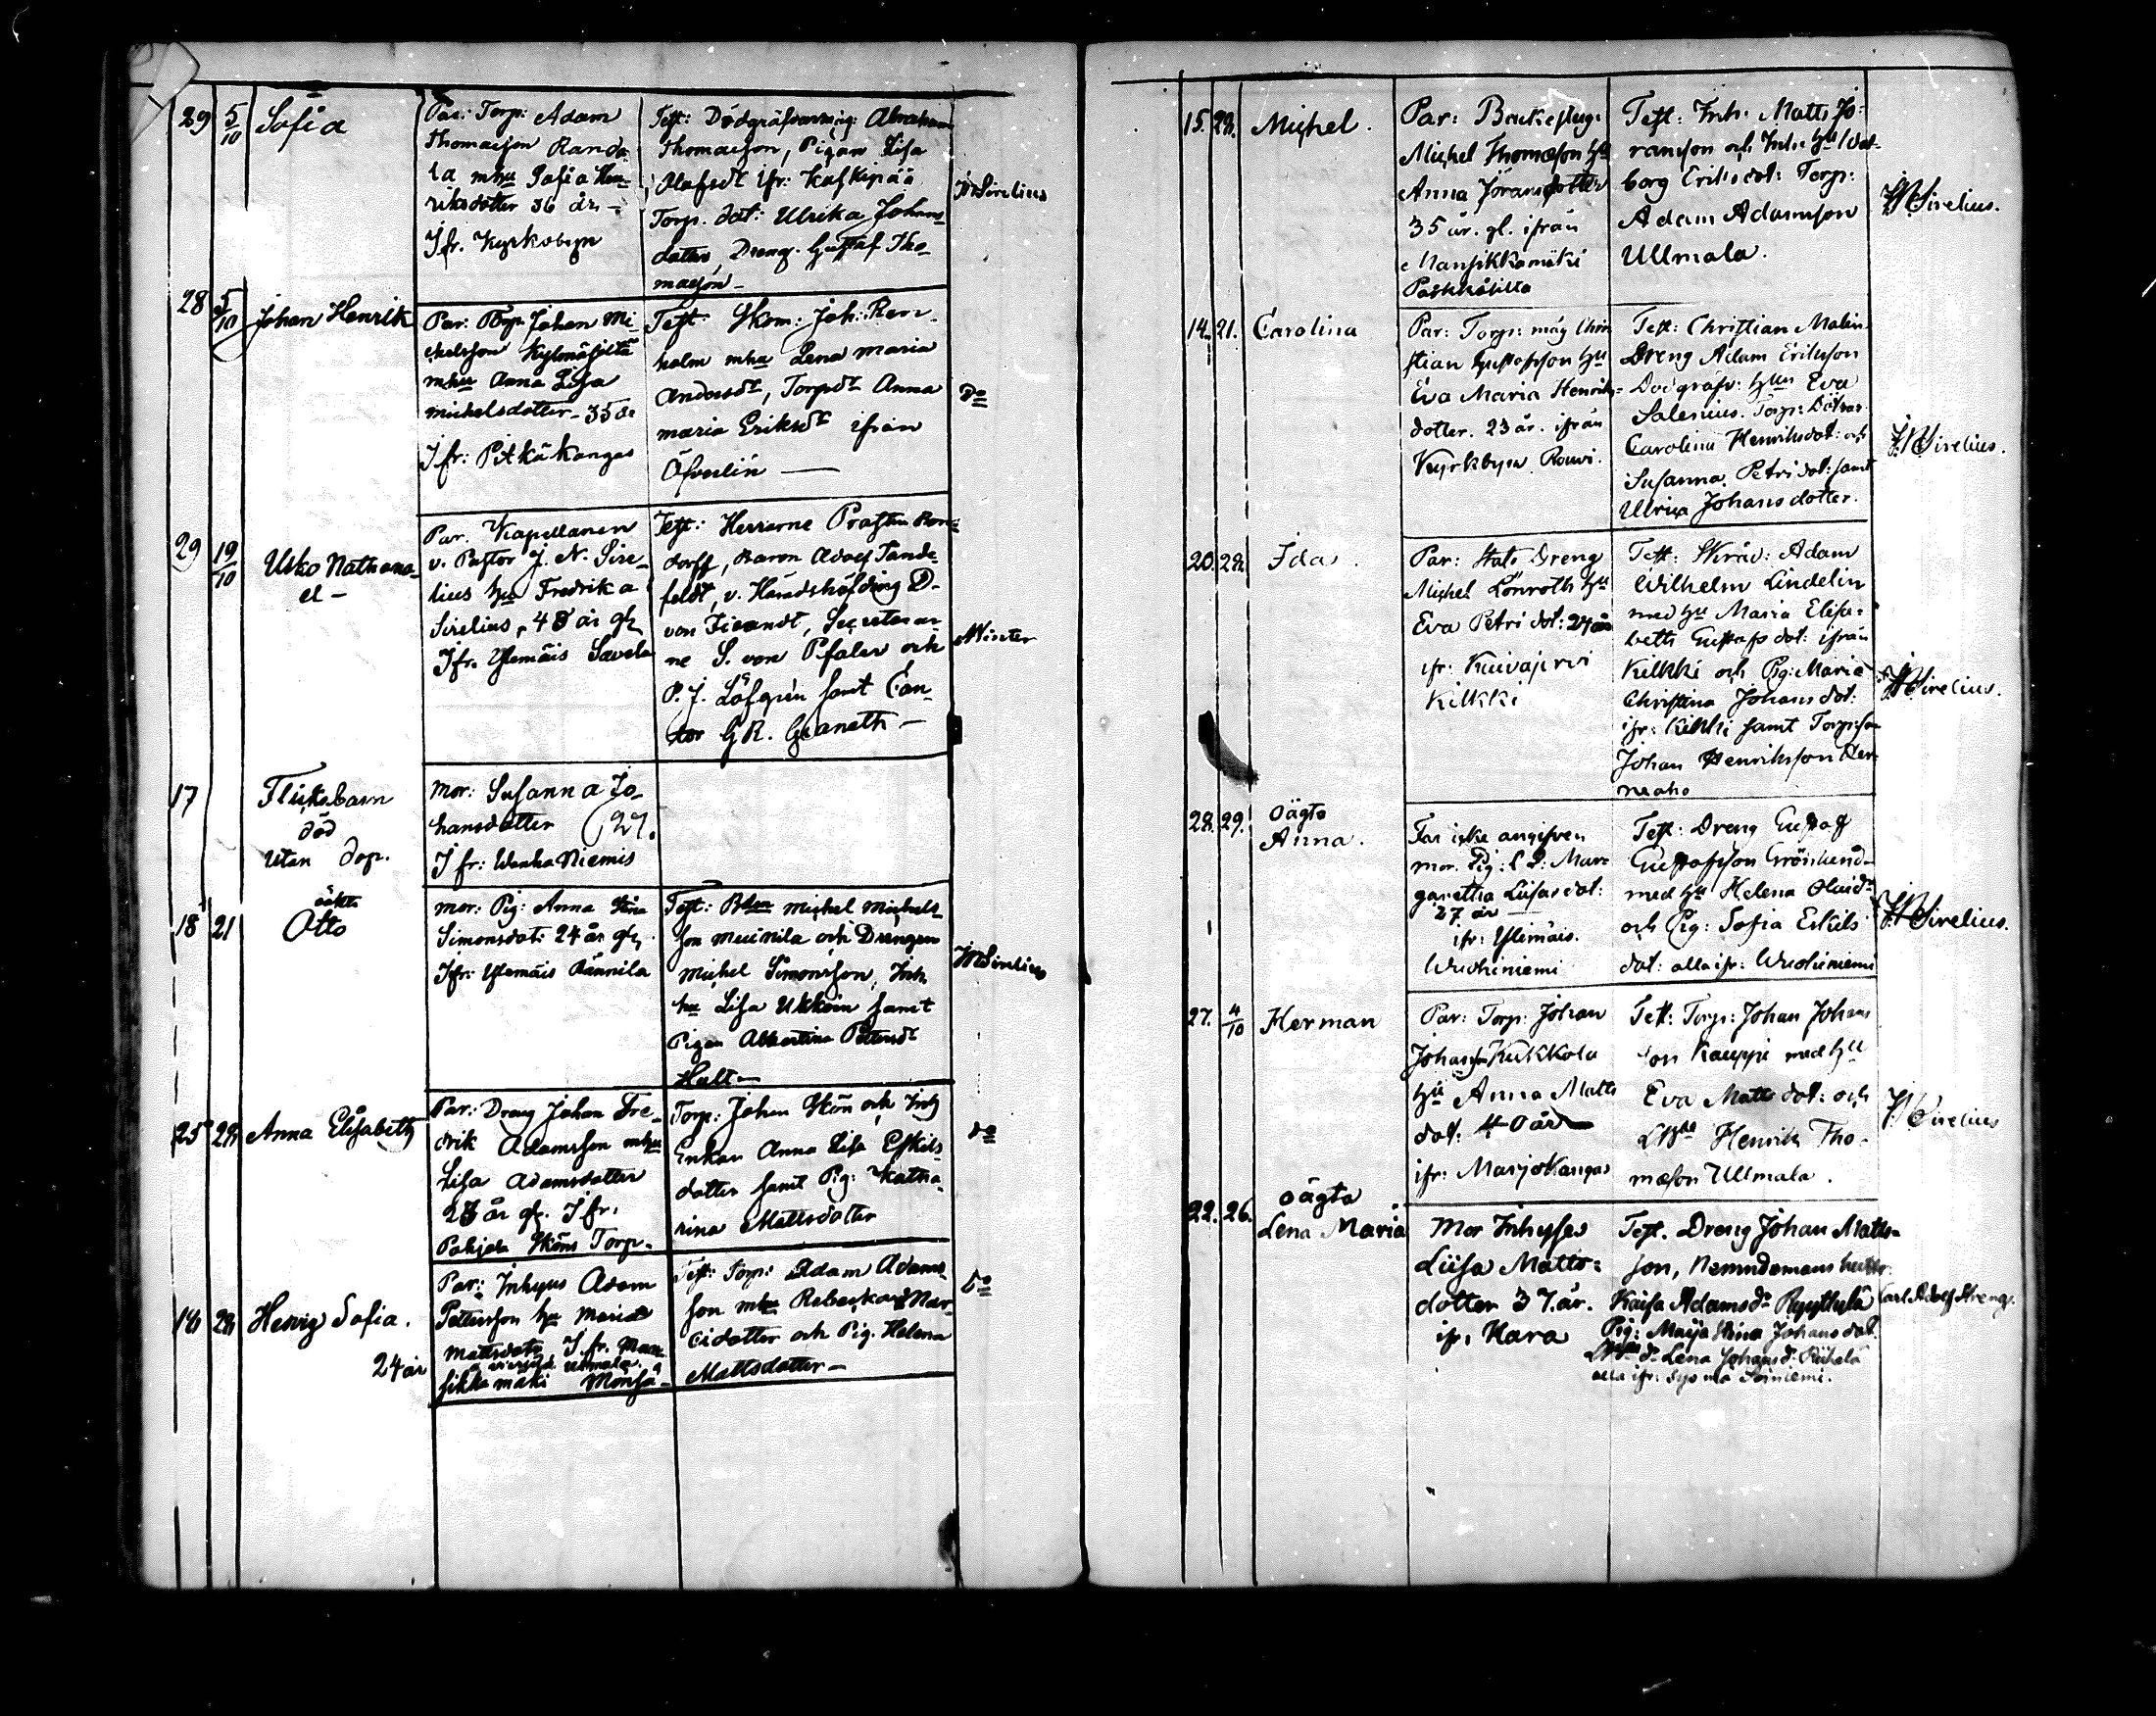 29 5/10 Sofia
Par: Torp: Adam
Thomasson Randa
la mhu Sofia Hen
riksdotter 36 år. –
Ifr. Kyrkobyn
Test: Dödgräfvarmåg: Abraham
Thomasson, Pigan Lisa
Olafsdt ifr:
Torp. dot: Ulrika Johans
dotter, Dreng. Gustaf Tho
masson –
JNSirelius
28 5/10 Johan Henrik
Par: Torp Johan Mi
chelsson Kylmäsiltä
mhu Anna Lisa
Michelsdotter – 35 år
Ifr: Pitkäkangas
Test: Skom: Joh: Ren
holm mhu Lena Maria
Andersdt, Torpdt Anna
Maria Eriksdt ifrån
Öfverlin –
do
29 19/10 Usko Nathana
el –
Par. Kapellanen
v. Pastor J. N. Sire
lius hu Fredrika
Sirelius, 48 år gl
Ifr. Ylemäis Savela
Test: Herrarne Prosten
dorff, Baron Adolf Tande
feldt, v. Häradshöfding D.
von Fieandt, Secreterar
ne S. von Pfaler och
P. J. Löfgrén samt Can
tor G R. Graneth –
Winter
17 Flickebarn
död
utan dop.
Mor: Susanna Jo
hansdotter (27.
Ifr: Wanha Niemis
18 21 oäkta
Otto
Mor: Pig: Anna Stina
Simonsdot: 24 år gl.
Ifr: Ylemäis Rännila
Test: Bdn Michel Michels
son Muurila och Drengen
Michel Simonsson, Inh
hu Lisa Ukkoin samt
Pigan Albertina Petersdt
Hult –
JNSirelius
25 28 Anna Elisabeth
Par: Dreng Johan Fre
drik Adamsson mhu
Lisa Adamsdotter
28 år gl. Ifr.
Pohjala Sköns Torp.
Torp: Johan Skön och Inh
Enkan Anna Lisa Eskils
dotter samt Pig: Katha
rina Mattsdotter
do
18 28 Hewig Sofia.
24 år
Par: Inhyses Adam
Pettersson hu Maria
Mattsdotr Ifr. Man
sikka mäki
Test: Torp: Adam Adams
son mhu Rebecka Mar
cidotter och Pig. Helena
Mattsdotter –
do
15. 28. Michel.
Par: Bruksslug:
Michel Thomasson hu
Anna Jöransdotter
35 år. gl. ifrån
Mansikkamäki
Test: Inh: Matts Jö
ransson och Inh: hu Wal
borg Eriksdot: Torp:
Adam Adamsson
Ullmala.
JNSirelius.
14. 21. Carolina
Par: Torp: måg Chri
stian Gustafsson hu
Eva Maria Henriks
dotter. 23 år. ifrån
Kyrkbyn Rouvi.
Test: Christian Malin
Dreng Adam Eriksson
Dödgräfv: hun Eva
Salenius. Torp: Döttrar
Carolina Henriksdot: och
Susanna Petridot: samt
Ulrica Johansdotter.
JNSirelius.
20. 28. Ida.
Par: Stats Dreng
Michel Lönroth hu
Eva Petri dot: 24 år
ifr: Kuivajervi
Kilkki
Test: Skräd: Adam
Wilhelm Lindelin
med hu Maria Elisa
beth Gustafsdot: ifrån
Kilkki och Pig: Maria
Christina Johansdot:
ifr: Kilkki samt Torp: son
Johan Henriksson Her
neaho
JNSirelius.
28. 29. Oägta
Anna.
Far icke angifven
Mor. Pig: L D: Mar
garetha Liisasdot:
27 år
ifr: Ylimäis.
Wuohiniemi
Test: Dreng Gustaf
Gustafsson Grönlund
med hu Helena Oluidr
och Pig: Sofia Eskils
dot: alla ifr: Wuohiniemi
JNSirelius.
27. 4/10 Herman
Par: Torp: Johan
Johansson Kukkola
hu Anna Matts
dot: 40 år
ifr: Marjokangas
Test: Torp: Johan Johans
son Kauppi med hu
Eva Matts dot: och
Henrik Tho
masson Ullmala.
JNSirelius
22. 26. Oägta
Lena Maria
Mor Inhyses
Liisa Matts:
dotter 37 år.
ifr. Kara
Test. Dreng Johan Matts
son, Nemndemans hustr:
Kaisa Adamsdr Ryyttylä
Pig: Maija Stina Johansdot.
Lena Johansdr
alla ifr:
Carl Adolf Streng.